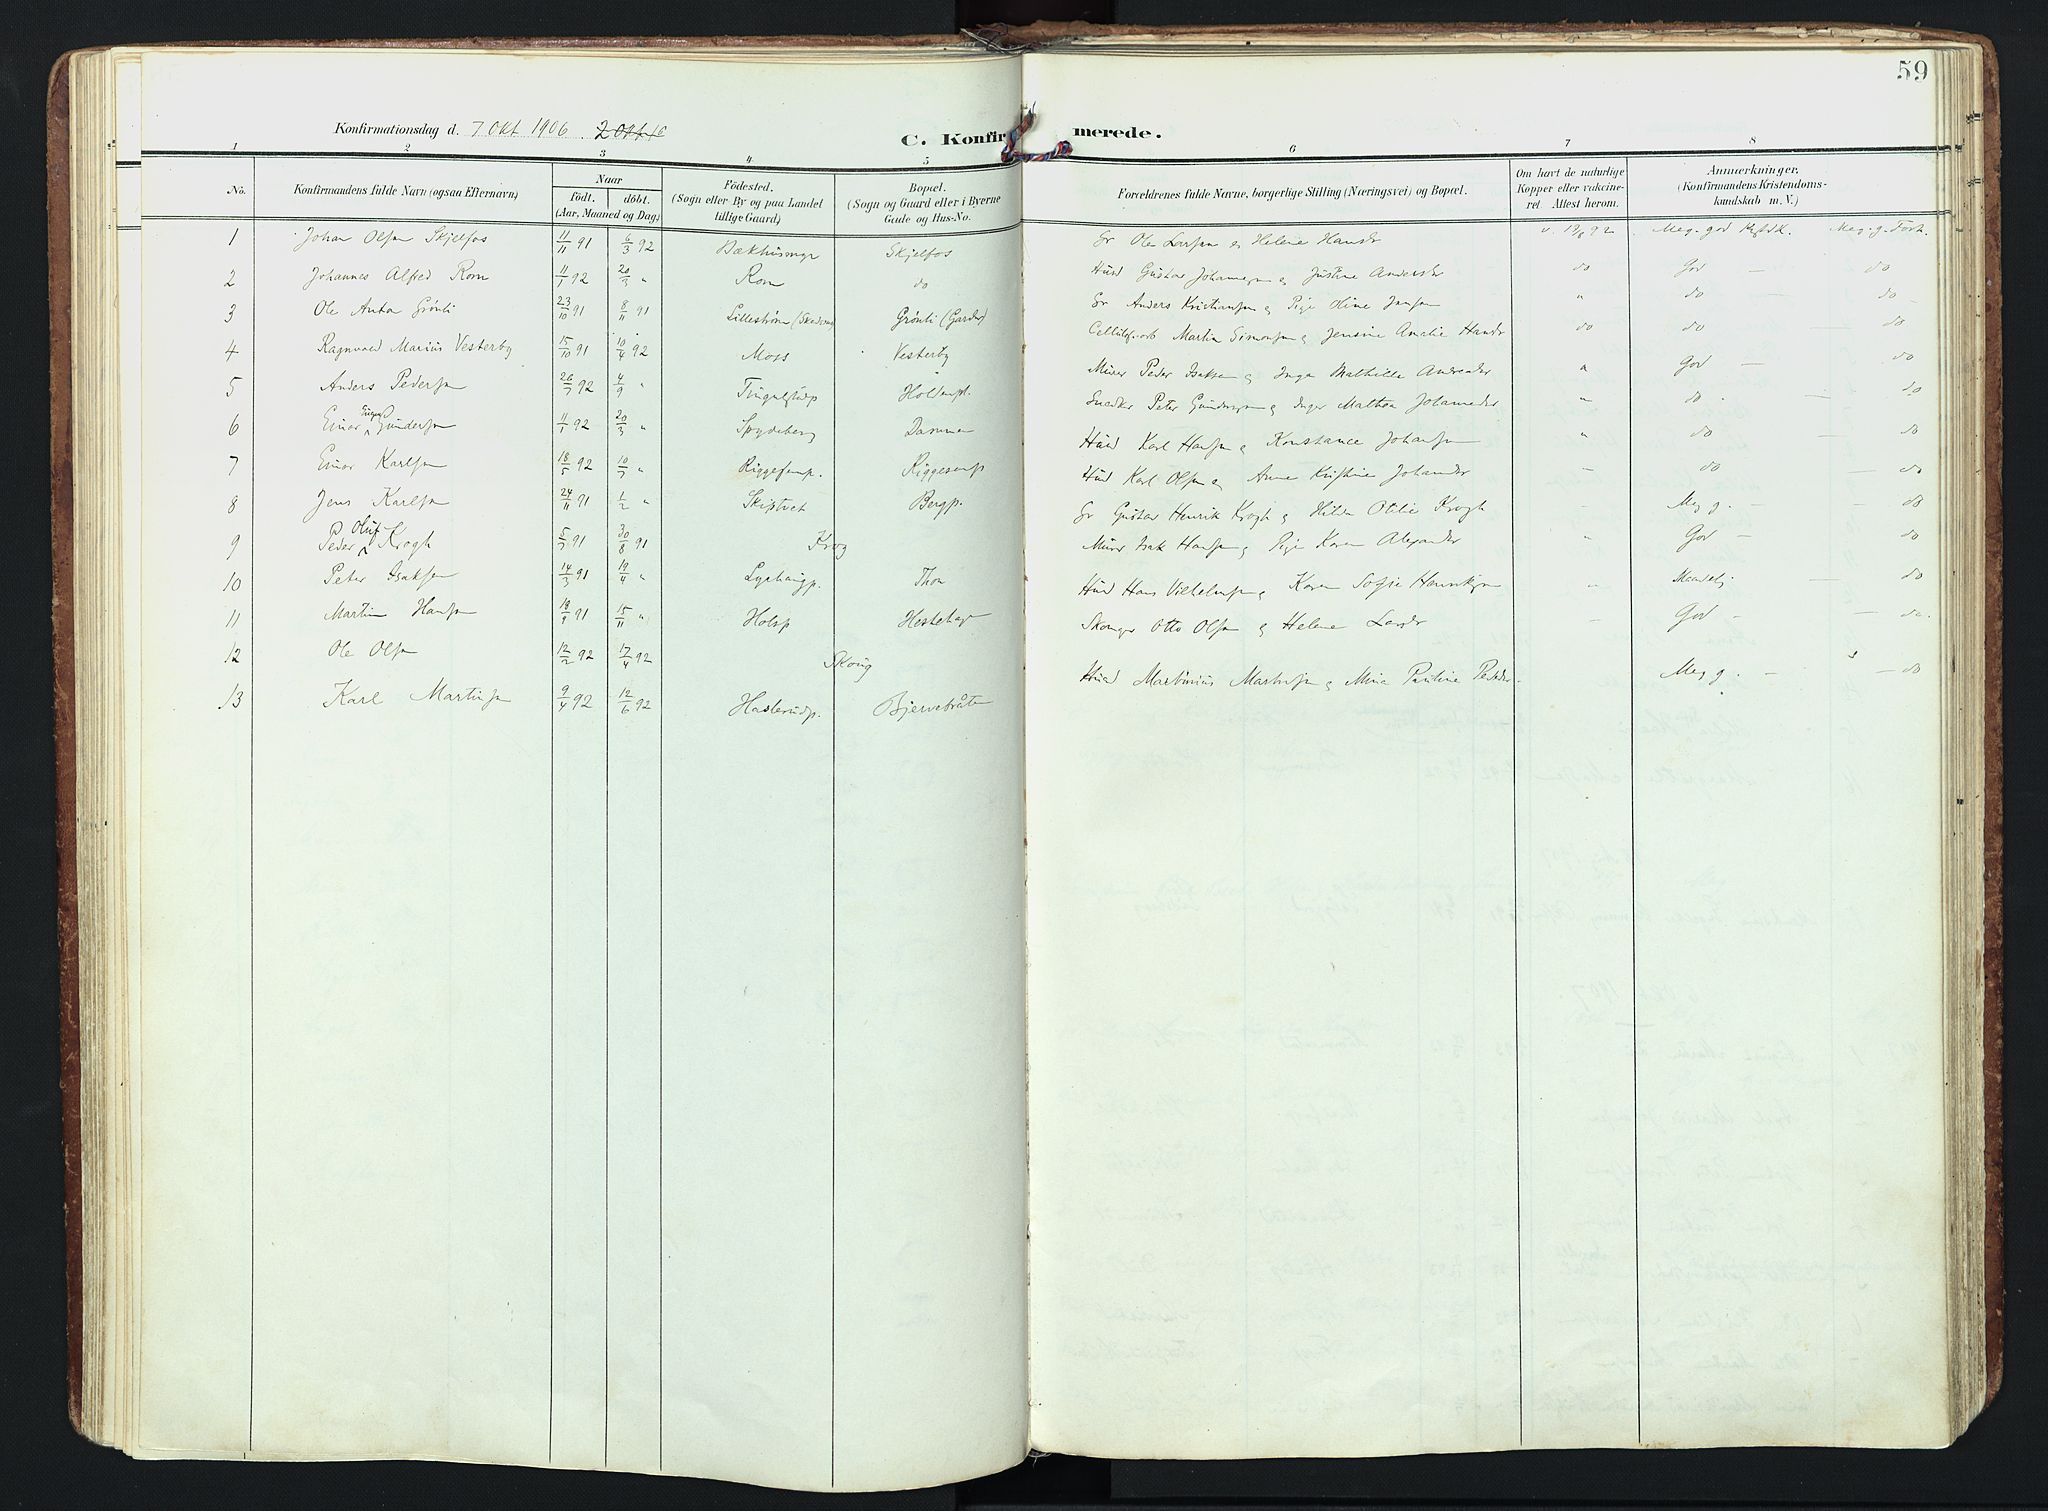 59
Konfirmationsdag d. 7 Okt 1906
C. Konfirmerede.
1 2 3 4 5 6 7 8
No. Konfirmandens fulde Navn (ogsaa Efternavn) Naar födt. döbt. (Aar, Maaned og Dag) Födested. (Sogn eller By og paa Landet tillige Gaard) Bopæl. (Sogn og Gaard eller i Byerne Gade og Hus-No. Forældrenes fulde Navne, borgerlige Stilling (Næringsvei) og Bopæl. Om havt de naturlige Kopper eller vaccineret. Attest herom. Anmærkninger. (Konfirmandens Kristendomskundskab m. V.)
1 Johan Olsen Skjelfos 11/11 91 6/3 92 Bækhusmyr Skjelfos Gr Ole Larsen og Helene Hansdr v. 19/8 92 Meg. god Meg. g. Forh.
2 Johannes Alfred Rom 11/1 92 20/3 " Rom do Husmd Gustav Johannesen og Justine Andersdr do God — do
3 Ole Anton Grönli 23/10 91 8/11 91 Lilleström Grönli (Garder) Gr Anders Kristiansen og Pige Oline Jensen " do — do
4 Ragnvald Marius Vesterby 15/10 91 10/4 92 Moss Vesterby Martin Simonsen og Jensine Amalie Hansdr do do — do
5 Anders Pedersen 26/7 92 4/9 " Holdenpl. Murer Peder Isaksen og Inga Mathilde Andreasdr " God — do
6 Einar Gundersen 11/1 92 20/3 " Spydeberg Dammen Snedker Peter Gundersen og Inger Mathea Johannesdr " do — do
7 Einar Karlsen 18/5 92 10/7 " Riggesenp. Riggesenp Husmd Karl Hansen og Konstance Johansen " do — do
8 Jens Karlsen 24/11 91 1/2 " Skiptvet Bergp. Husmd Karl Olsen og Anne Kristine Johansdr — do — do
9 Peder Oluf Krogh 5/7 91 30/8 91 Krog Gr Gustav Henrik Krogh og Hilda Otilie Krogh — Meg g. — do
10 Peter Isaksen 14/3 91 19/4 " Thon Murer Isak Hansen og Pige Karen Alexandersdr " God — do
11 Martin Hansen 18/9 91 15/11 " Holsp Hestehage Husmd Hans Vilhelmsen og Karen Sofie Henriksen — Maadelig — do
12 Ole Olsen 12/2 92 17/4 92 Skoug Otto Olsen og Helene Larsdr — God — do.
13 Karl Martinsen 9/4 92 12/6 92 Haslerudp. Bjervebråten Husmd Martinius Martinsen og Mina Pauline Pedersdr. Meg g. — do